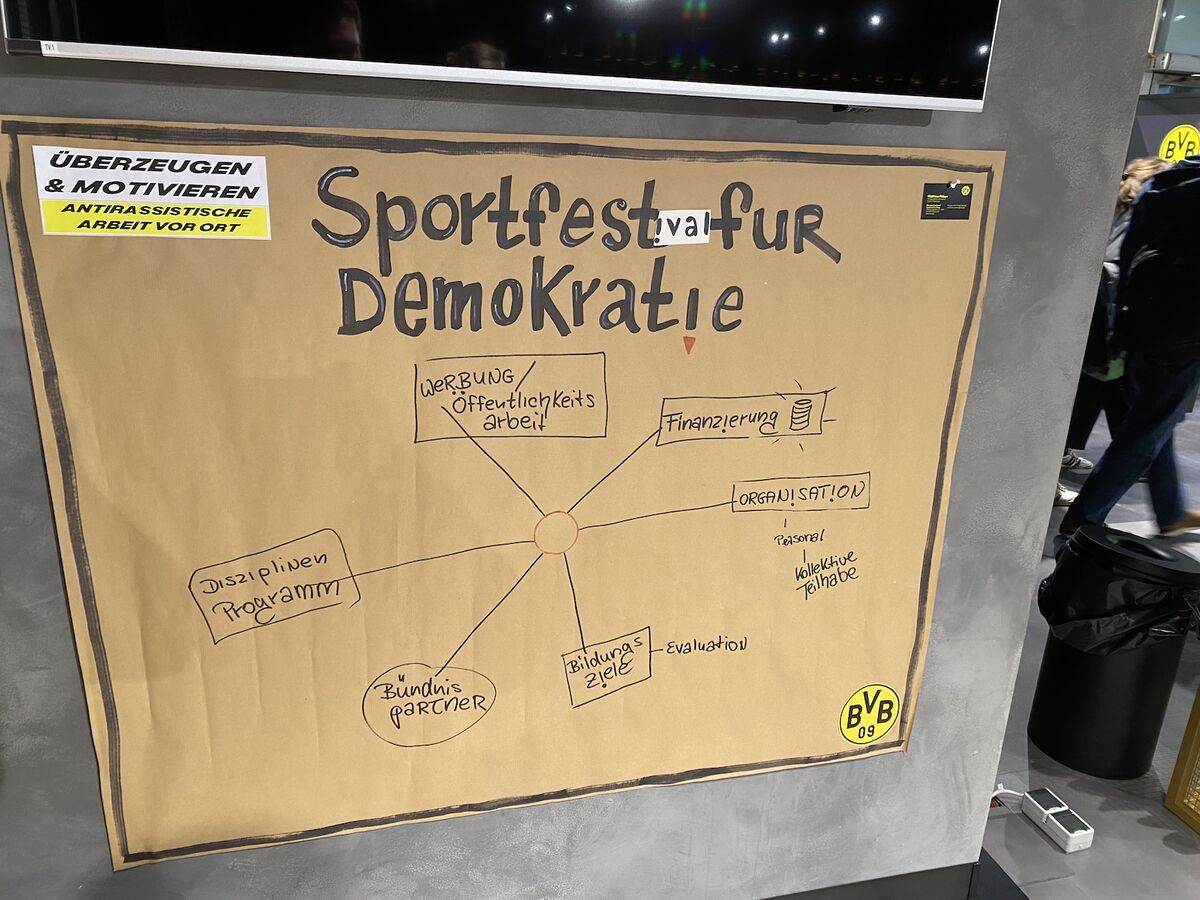 TV1
ÜBERZEUGEN
& MOTIVIEREN
ANTIRASSISTISCHE
ARBEIT VOR ORT
Sportfestival fur
Demokratie
WERBUNG/
Öffentlichkeits
arbeit
Finanzierung
ORGANISATION
Personal
Kollektive
Teilhabe
Disziplinen
Programm
Bündnis
partner
Bildungs
ziele
Evaluation
BVB
09
BVB